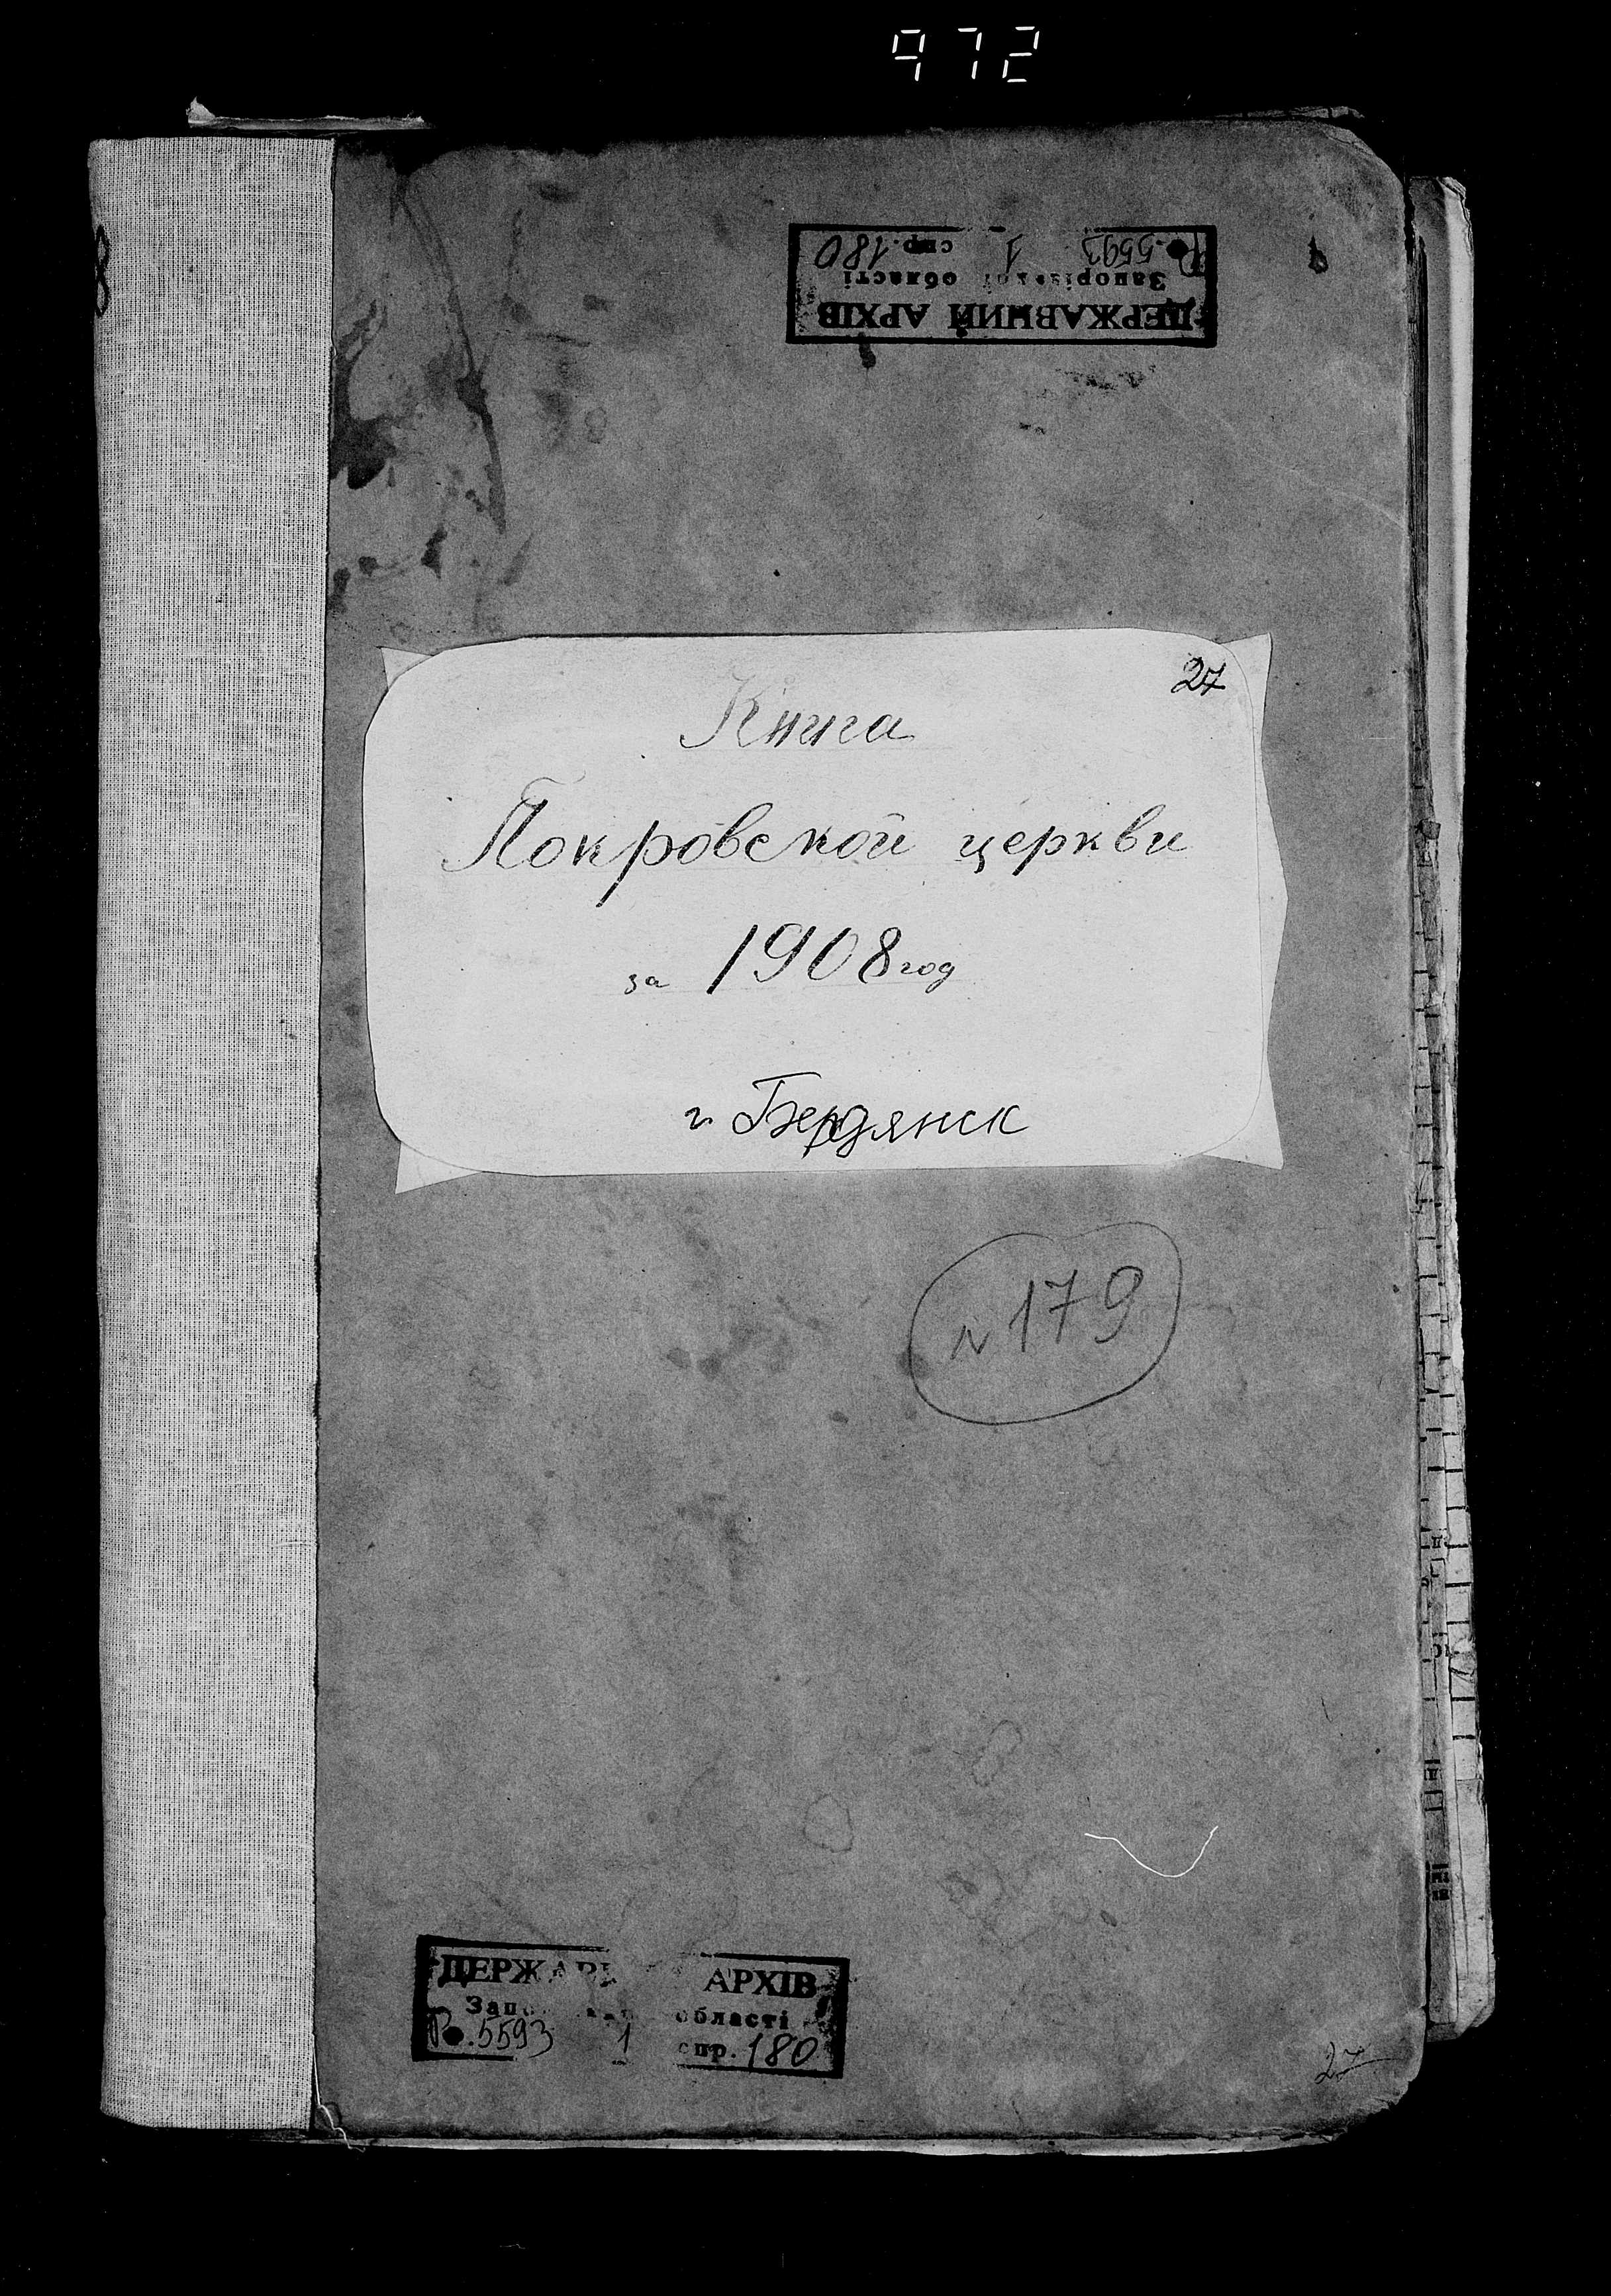 972
ДЕРЖАВНИЙ АРХІВ
Запорізької області
Р. 5593 1 спр. 180
27
Книга
Покровской церкви
за 1908 год
г. Бердянск
N 179
ДЕРЖАВ АРХІВ
Запо області
Р. 5593 1 спр. 180
27